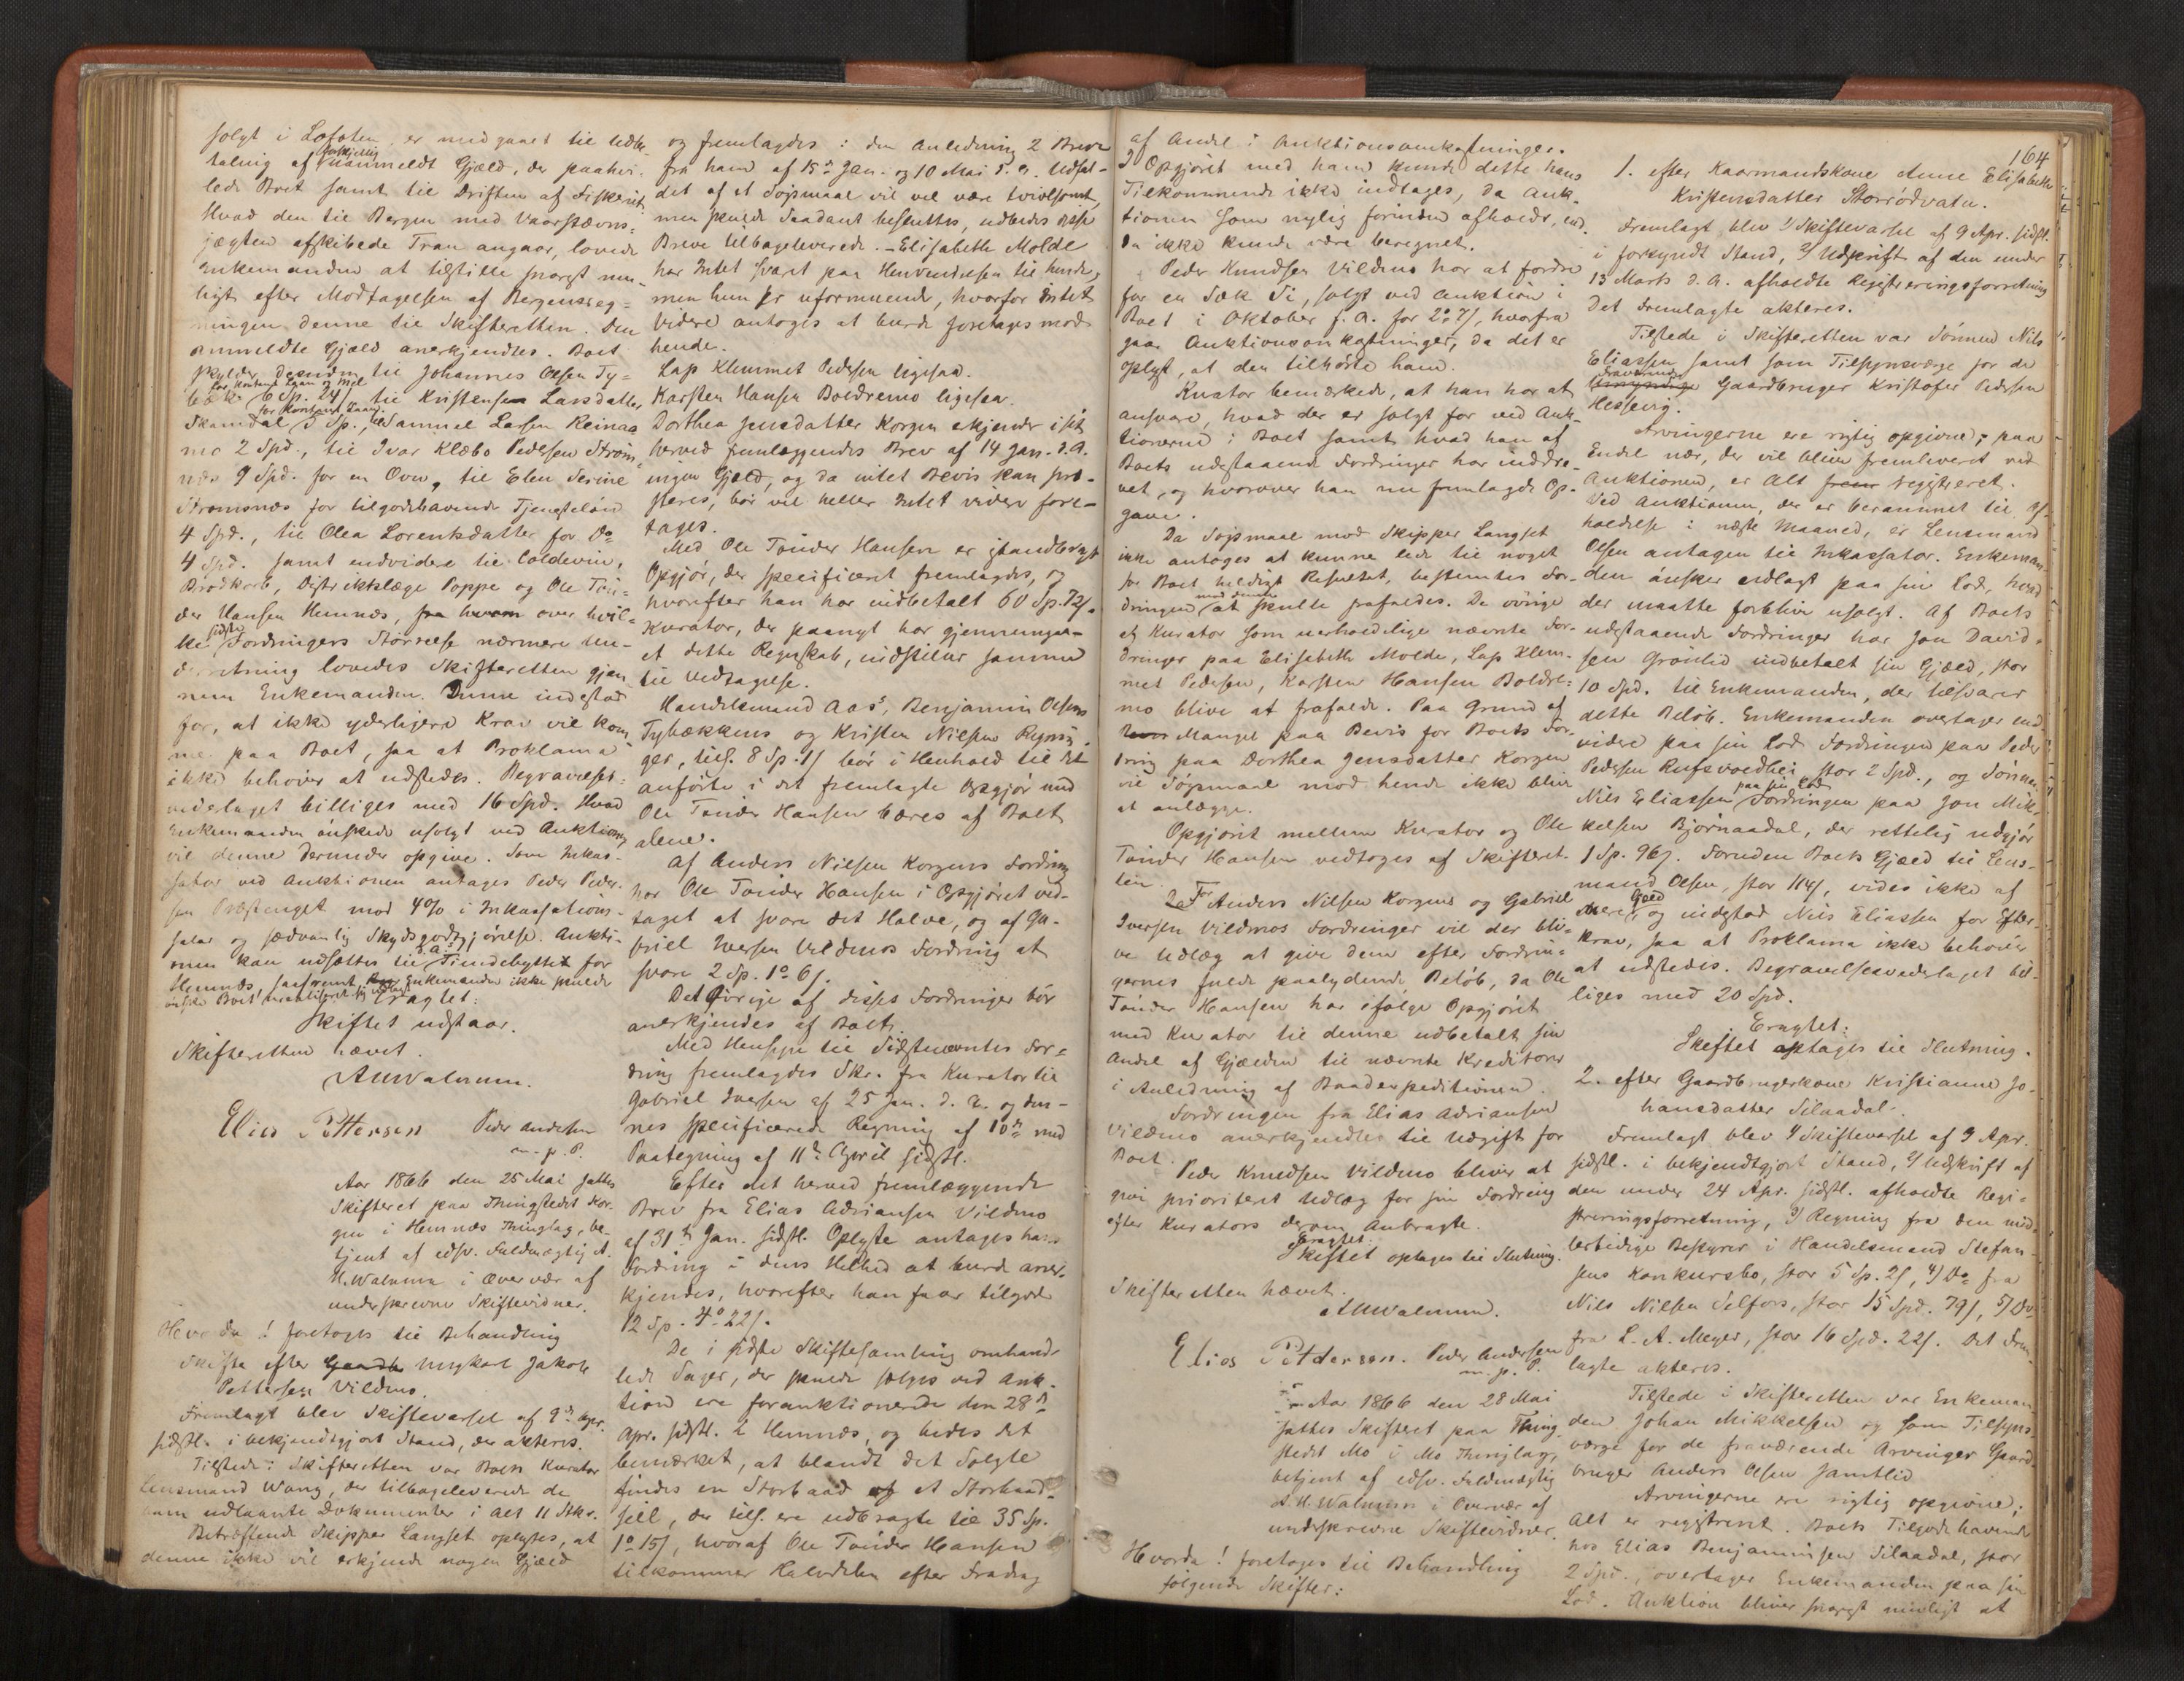 solgt i Lofoten, er medgaaet til Udbe-
taling af forskjellig uanmeldt Gjæld, der paahvi-
lede Boet samt til Driften af Fiskeriet.
Hvad den til Bergen med Vaarstævns-
jægten afskibede Tran angaar, lovede
Enkemanden at tilstille snarest mu-
ligt efter Modtagelsen af Bergensreg-
ningen denne til Skifteretten. Den
anmeldte Gjæld anerkjendtes. Boet
skylder desuden til Johannes Olsen Ty-
bæk for kontant Laan og Mel 6 Sp. 24 s, til Kristense Larsdatter
Skamdal for kontant Laan 5 Sp., til Sammel Larsen Reinaa
mo 2 Spd., til Ivar Klæbo Pedersen Strøm-
næs 9 Spd. for en Ovn, til Elen Serine
Strømsnæs for tilgodehavende Tjenesteløn
4 Spd., til Olea Lorentsdatter for Do
4 Spd. samt endvidere til Coldevin,
Brødkorb, Distriktslæge Poppe og Ole Tøn-
der Hansen Hemnæs, fra hvem over hvil-
ke sidste Fordringers Størrelse nærmere Un-
derretning lovedes Skifteretten gjen-
nem Enkemanden. Denne indestod
for, at ikke yderligere Krav vil kom
me paa Boet, saa at Proklama
ikke behøver at udstedes. Begravelses-
vederlaget billiges med 16 Spd. Hvad
Enkemanden ønskede usolgt ved Auktionen,
vil denne derunder opgive. Som Inkas-
sator ved Auktionen antages Peder Peder-
sen Præstenget mod 4% i Inkassations-
salær og sædvanlig Skydsgodtgjørelse. Aukti-
onen kan udsættes til d. A. Tiendebyttet for
Hemnæs, saafremt Enkemanden ikke skulde
ønske Boet sig udlagt.
Eragtet:
Skiftet udstaar.
Skifteretten hævet.
A H Walnum.
Elias Pettersen Peder Andersen
m. p. P.
Aar 1866 den 25 Mai sattes
Skifteret paa Thingstedet Kor-
gen i Hemnæs Thinglag, be-
tjent af edsv. Fuldmægtig A.
H. Walnum i Overvær af
underskrevne Skiftevidner.
Hvorda! foretoges til Behandling
Skifte efter Gaardb Ungkarl Jakob
Pettersen Vildmo.
Fremlagt blev Skiftevarsel af 9de Apr.
sidstl. i bekjendtgjort Stand, der akteres.
Tilstede i Skifteretten var Boets Kurator
Lensmand Wang, der tilbageleverede de
ham udlaante Dokumenter i alt 11 Stkr.
Betræffende Skipper Langset oplystes, at
denne ikke vil erkjende nogen Gjæld
og fremlagdes i den Anledning 2 Breve
fra ham af 15de Jan. og 10 Mai d. A. Udfal-
det af et Søgsmaal vil vel være tvivlsomt,
men skulde saadant besluttes, udbedes disse
Breve tilbageleverede. - Elisabeth Molde
har Intet svaret paa Henvendelsen til hende,
men hun er uformuende, hvorfor Intet
Videre antages at burde foretages mod
hende.
Lap Klemmet Pedersen ligesaa.
Karsten Hansen Boldremo ligesaa.
Dorthea Jensdatter Korgen erkjender i sit
herved fremlæggendes Brev af 14 Jan. d. A.
ingen Gjæld, og da intet Bevis kan præ-
steres, bør vel heller Intet videre fore-
tages.
Med Ole Tønder Hansen er istandbragt
Opgjør, der specificeret fremlagdes, og
hvorefter han har indbetalt 60 Sp. 72 s.
Kurator, der paanyt har gjennemgaa-
et dette Regnskab, indstiller samme
til Vedtagelse.
Handelsmand Aas', Benjamin Olsens
Tybækkens og Kristen Nilsens Regnin-
ger, tils. 8 Sp. 1 s bør i Henhold til det
anførte i det fremlagte Opgjør med
Ole Tønder Hansen bæres af Boet
alene.
Af Anders Nilsen Korgens Fordring
har Ole Tønder Hansen i Opgjøret ved-
taget at svare det Halve, og af Ga-
briel Iversen Vildmos Fordring at
svare 2 Sp. 1 o 6 s.
Det Øvrige af disses Fordringer bør
anerkjendes af Boet.
Med Hensyn til Sidstnævntes For-
dring fremlagdes Skr. fra Kurator til
Gabriel Iversen af 25 Jan. d. A. og den-
nes specificerede Regning af 10de med
Paategning af 11te April sidstl.
Efter det herved fremlæggende
Brev fra Elias Adriansen Vildmo
af 31te Jan. sidstl. Oplyste antages hans
Fordring i dens Helhed at burde aner-
kjendes, hvorefter han faar tilgode
12 Sp. 4 o 22 s.
De i sidste Skiftesamling omhand-
lede Sager, der skulde sælges ved Auk-
tion ere forauktionerede den 28de
Apr. sidstl. i Hemnæs, og bedes det
bemærket, at blandt det Solgte
findes en Storbaad og et Storbaad-
seil, der tils. ere udbragte til 35 Sp.
1 o 15 s, hvoraf Ole Tønder Hansen
tilkommer Halvdelen efter Fradrag
af Andel i Auktionsomkostninger.
I Opgjøret med ham kunde dette hans
Tilkommende ikke indtages, da Auk-
tionen som nylig forinden afholdt, end-
da ikke kunde være beregnet.
Peder Knudsen Vildmo har at fordre
for en Sæk Si, solgt ved Auktion i
Boet i Oktober f. A. for 2 o 7 s, hvorfra
gaar Auktionsomkostninger, da det er
oplyst, at den tilhørte ham.
Kurator bemærkede, at han har at
ansvare, hvad der er solgt for ved Auk-
tionerne i Boet samt hvad han af
Boets udestaaende Fordringer har inddre-
vet, og hvorover han nu fremlagde Op-
gave.
Da Søgsmaal mod Skipper Langset
ikke antages at kunne lede til noget
for Boet heldigt Resultat, bestemtes For-
dringen mod denne at skulle frafaldes. De øvrige
af Kurator som uerholdelige nævnte For-
dringer paa Elisabeth Molde, Lap Klem-
met Pedersen, Karsten Hansen Boldre-
mo blive at frafalde. Paa Grund af
Mangel paa Bevis for Boets For-
dring paa Dorthea Jensdatter Korgen
vil Søgsmaal mod hende ikke blive
at anlægge.
Opgjøret mellem Kurator og Ole
Tønder Hansen vedtoges af Skifteret-
ten.
For Anders Nilsen Korgens og Gabriel
Iversen Vildmos Fordringer vil der bli-
ve Udlæg at give dem efter Fordrin-
gernes fulde paalydende Beløb, da Ole
Tønder Hansen har ifølge Opgjøret
med Kurator til denne udbetalt sin
Andel af Gjælden til nævnte Kreditorer
i Anledning af Baadexpeditionen.
Fordringen fra Elias Adriansen
Vildmo anerkjendtes til Udgift for
Boet.
Peder Knudsen Vildmo bliver at
give prioriteret Udlæg for sin Fordring
efter Kurators derom Anbragte.
Eragtet:
Skiftet optages til Slutning.
Skifteretten hævet.
A H Walnum.
Elias Pettersen. Peder Andersen
m. p. P.
Aar 1866 den 28 Mai
sattes Skifteret paa Thing-
stedet Mo i Mo Thinglag,
betjent af edsv. Fuldmægtig
A. H. Walnum i Overvær af
underskrevne Skiftevidner.
Hvorda! foretoges til Behandling
følgende Skifter:
164
1. efter Kaarmandskone Anne Elisabeth
Kristensdatter Storrødvatn.
Fremlagt blev 1/ Skiftevarsel af 9 Apr. sidstl.
i forkyndt Stand, 2/ Udskrift af den under
13 Marts d. A. afholdte Registreringsforretning
Det Fremlagte akteres.
Tilstede i Skifteretten var Sønnen Nils
Eliassen samt som Tilsynsværge for de
fraværende Umyndige Gaardbruger Kristofer Pedersen
Hessevig.
Arvingerne ere rigtig opgivne; paa
Endel nær, der vil blive fremleveret ved
Auktionen, er Alt frem registreret.
Ved Auktionen, der er berammet til Af-
holdelse i næste Maaned, er Lensmand
Olsen antagen til Inkassator. Enkeman-
den ønsker udlagt paa sin Lod, hvad
der maatte forblive usolgt. Af Boets
udestaaende Fordringer har Jon David-
sen Grønlid indbetalt sin Gjæld, stor
10 Spd. til Enkemanden, der tilsvarer
dette Beløb. Enkemanden overtager end-
videre paa sin Lod Fordringen paa Peder
Pedersen Rufsvoldhei, stor 2 Spd., og Sønnen
Nils Eliassen paa sin Lod Fordringen paa Jon Mik-
kelsen Bjørnaadal, der rettelig udgjør
1 Sp. 96 s. Foruden Boets Gjæld til Lens-
mand Olsen, stor 114 s, vides ikke af
mere Gjæld og indestod Nils Eliassen for Efter-
krav, saa at Proklama ikke behøver
at udstedes. Begravelsesvederlaget bil-
liges med 20 Spd.
Eragtet:
Skiftet optages til Slutning.
2. efter Gaardbrugerkone Kristianne Jo-
hansdatter Silaadal.
Fremlagt blev 1/ Skiftevarsel af 9 Apr.
sidstl. i bekjendtgjort Stand, 2/ Udskrift af
den under 24 Apr. sidstl. afholdte Regi-
streringsforretning, 3/ Regning fra den mid-
lertidige Bestyrer i Handelsmand Stefan-
sens Konkursbo, stor 5 Sp. 2 s, 4/ Do fra
Nils Nilsen Selfors, stor 15 Spd. 79 s, 5/ Do
fra L. A. Meyer, stor 16 Spd. 22 s. Det Frem-
lagte akteres.
Tilstede i Skifteretten var Enkeman-
den Johan Mikkelsen og som Tilsyns-
værge for de fraværende Arvinger Gaard-
bruger Anders Olsen Jamtlid
Arvingerne ere rigtig opgivne;
Alt er registreret. Boets Tilgodehavende
hos Elias Benjaminsen Silaadal, stor
2 Spd., overtager Enkemanden paa sin
Lod. Auktion bliver snarest muligt at